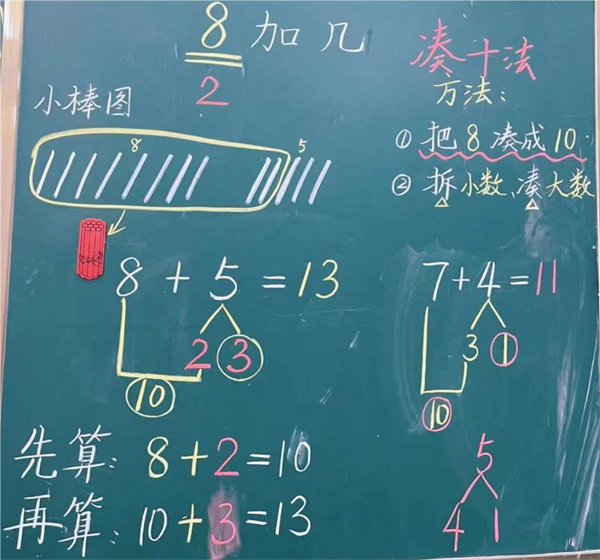 8加几
2
凑十法
小棒图
方法：
8
5
①把8凑成10
②拆小数、凑大数
8+5=13
2 ③
⑩
7+4=11
3 ①
⑩
先算：8+2=10
再算：10+3=13
5
4 1